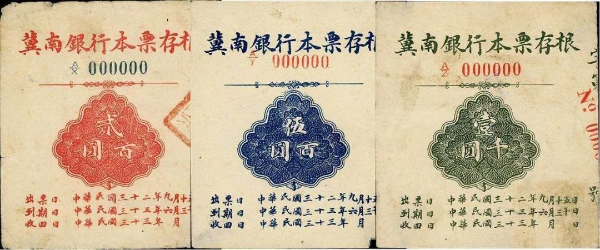 冀南銀行本票存根
000000
貳百圓
出票日 中華民國三十二年九月十五日
到期日 中華民國三十三年六月三十日
收回日 中華民國三十 年 月
冀南銀行本票存根
000000
伍百圓
出票日 中華民國三十二年九月十五日
到期日 中華民國三十三年六月三十日
收回日 中華民國三十 年 月
冀南銀行本票存根
000000
壹千圓
出票日 中華民國三十二年九月十五日
到期日 中華民國三十三年六月三十日
收回日 中華民國三十 年 月
字第
No 000
號